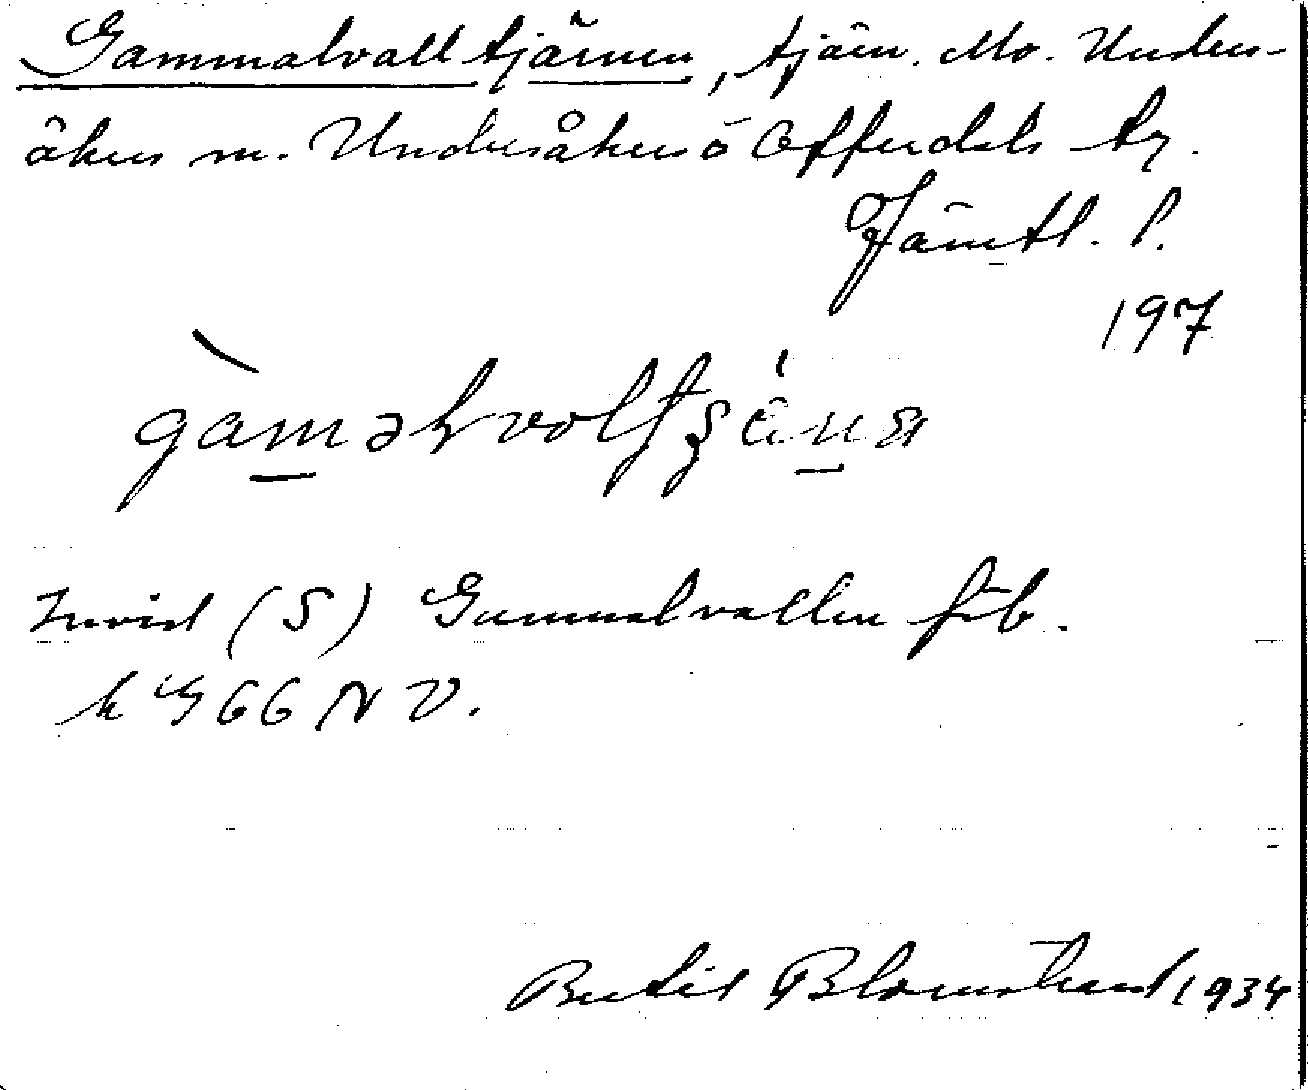 Gammalvalltjärnen, tjärn. Mo. Unders-
åkers sn. Undersåkers o Offerdals tg.
Jämtl. l.
197
Invid (S) Gammalvallen fäb.
k G66 NV.
Bertil Blomstrand 1934